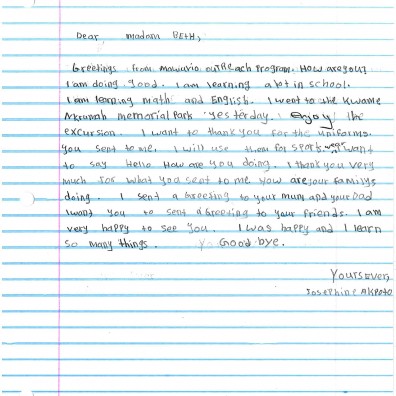 Dear madam BETH,
Greetings from Mawuvio outReach Program. How are you?
I am doing good. I am learning a lot in school.
I am learning math and English. I went to the Kwame
Nkrumah memorial Park yesterday. I enjoy the
excursion. I want to thank you for the uniforms.
you sent to me. I will use them for sport. I want
to say Hello How are you doing. I thank you very
much for what you sent to me. How are your familys
doing. I sent a Greeting to your mum and your Dad
I want you to sent a Greeting to your friends. I am
very happy to see you. I was happy and I learn
so many things. Good bye.
Yours ever,
Josephine Akpoto